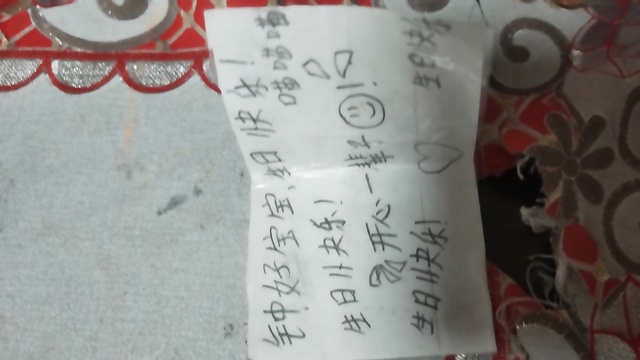 钟好宝宝、生日快乐!
喵喵喵
生日快乐!
开心一辈子!
生日快乐! 生日快乐